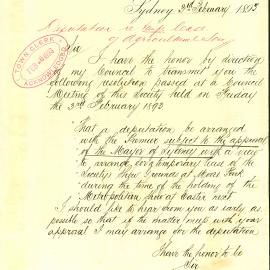 Sydney 3rd February 1893
Deputation re temp lease
of Agricultural
TOWN CLERK
FEB 4 1893
ACKNOWLEDGED
Sir
I have the honor by direction
of my Council to transmit you the
following resolution passed at a Council
Meeting of this Society held on Friday
the 3rd February 1893
"That a deputation be arranged
with the Premier subject to the approval
of the Mayor of Sydney with a view
to arrange for a temporary lease of the
Society's Show Grounds at Moore Park
during the time of the holding of the
Metropolitan Show at Easter next
I should like to hear from you as early as
possible so that if the matter meets with your
approval I may arrange for the deputation
I have the honor to be
Sir